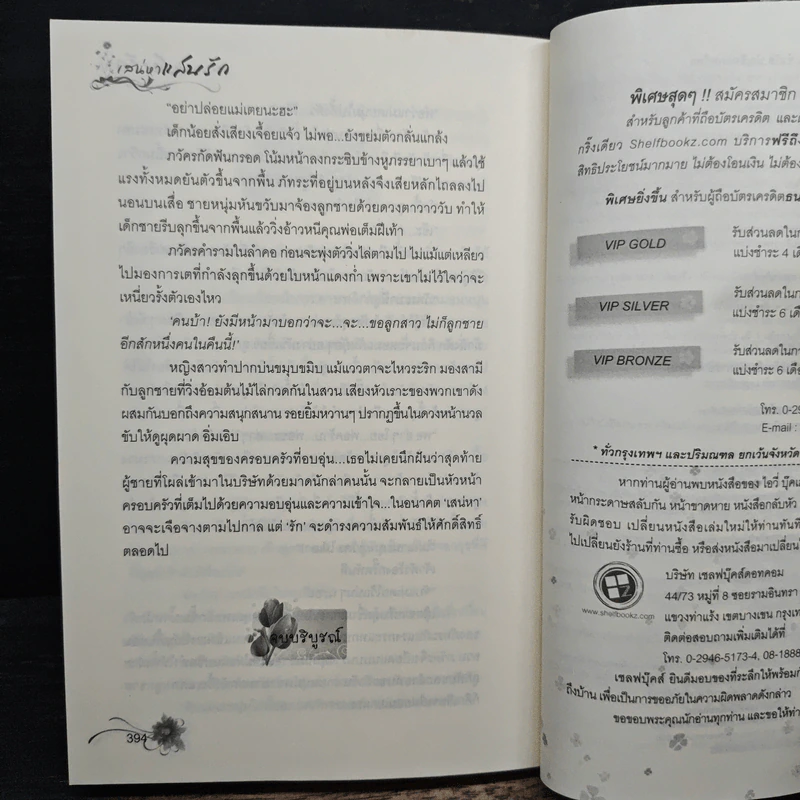 เสน่หาแสนรัก
"อย่าปล่อยแม่เตยนะฮะ"
เด็กน้อยสั่งเสียงเจื้อยแจ้ว ไม่พอ...ยังขย่มตัวกลั่นแกล้ง
ภวัครกัดฟันกรอด โน้มหน้าลงกระซิบข้างหูภรรยาเบาๆ แล้วใช้
แรงทั้งหมดยันตัวขึ้นจากพื้น ภัทระที่อยู่บนหลังจึงเสียหลักไถลลงไป
นอนบนเสื่อ ชายหนุ่มหันขวับมาจ้องลูกชายด้วยดวงตาวาววับ ทำให้
เด็กชายรีบลุกขึ้นจากพื้นแล้ววิ่งอ้าวหนีคุณพ่อเต็มฝีเท้า
ภวัครคำรามในลำคอ ก่อนจะพุ่งตัววิ่งไล่ตามไป ไม่แม้แต่เหลียว
ไปมองการเตที่กำลังลุกขึ้นด้วยใบหน้าแดงก่ำ เพราะเขาไม่ไว้ใจว่าจะ
เหนี่ยวรั้งตัวเองไหว
'คนบ้า! ยังมีหน้ามาบอกว่าจะ...จะ...ขอลูกสาว ไม่ก็ลูกชาย
อีกสักหนึ่งคนในคืนนี้!'
หญิงสาวทำปากบ่นขมุบขมิบ แม้แววตาจะไหวระริก มองสามี
กับลูกชายที่วิ่งอ้อมต้นไม้ไล่กวดกันในสวน เสียงหัวเราะของพวกเขาดัง
ผสมกันบอกถึงความสนุกสนาน รอยยิ้มหวานๆ ปรากฏขึ้นในดวงหน้านวล
ขับให้ดูผุดผาด อิ่มเอิบ
ความสุขของครอบครัวที่อบอุ่น...เธอไม่เคยนึกฝันว่าสุดท้าย
ผู้ชายที่โผล่เข้ามาในบริษัทด้วยมาดนักล่าคนนั้น จะกลายเป็นหัวหน้า
ครอบครัวที่เต็มไปด้วยความอบอุ่นและความเข้าใจ...ในอนาคต 'เสน่หา'
อาจจะเจือจางตามไปกาล แต่ 'รัก' จะดำรงความสัมพันธ์ให้ศักดิ์สิทธิ์
ตลอดไป
จบบริบูรณ์
394
พิเศษสุดๆ !! สมัครสมาชิก
สำหรับลูกค้าที่ถือบัตรเครดิต และเ
กริ๊งเดียว Shelfbookz.com บริการฟรีถึง
สิทธิประโยชน์มากมาย ไม่ต้องโอนเงิน ไม่ต้อง
พิเศษยิ่งขึ้น สำหรับผู้ถือบัตรเครดิตธน
VIP GOLD
รับส่วนลดในก
แบ่งชำระ 4 เดื
VIP SILVER
รับส่วนลดในก
แบ่งชำระ 6 เดื
VIP BRONZE
รับส่วนลดในก
แบ่งชำระ 6 เดื
โทร. 0-29
E-mail :
* ทั่วกรุงเทพฯ และปริมณฑล ยกเว้นจังหวัด
หากท่านผู้อ่านพบหนังสือของ ไอวี่ บุ๊คแ
หน้ากระดาษสลับกัน หน้าขาดหาย หนังสือกลับหัว
รับผิดชอบ เปลี่ยนหนังสือเล่มใหม่ให้ท่านทันที
ไปเปลี่ยนยังร้านที่ท่านซื้อ หรือส่งหนังสือมาเปลี่ยน
www.shelfbookz.com
บริษัท เชลฟบุ๊คส์ดอทคอม
44/73 หมู่ที่ 8 ซอยรามอินทรา
แขวงท่าแร้ง เขตบางเขน กรุงเท
ติดต่อสอบถามเพิ่มเติมได้ที่
โทร. 0-2946-5173-4, 08-1888
เชลฟบุ๊คส์ ยินดีมอบของที่ระลึกให้พร้อมก
ถึงบ้าน เพื่อเป็นการขออภัยในความผิดพลาดดังกล่าว
ขอขอบพระคุณนักอ่านทุกท่าน และขอให้ท่า